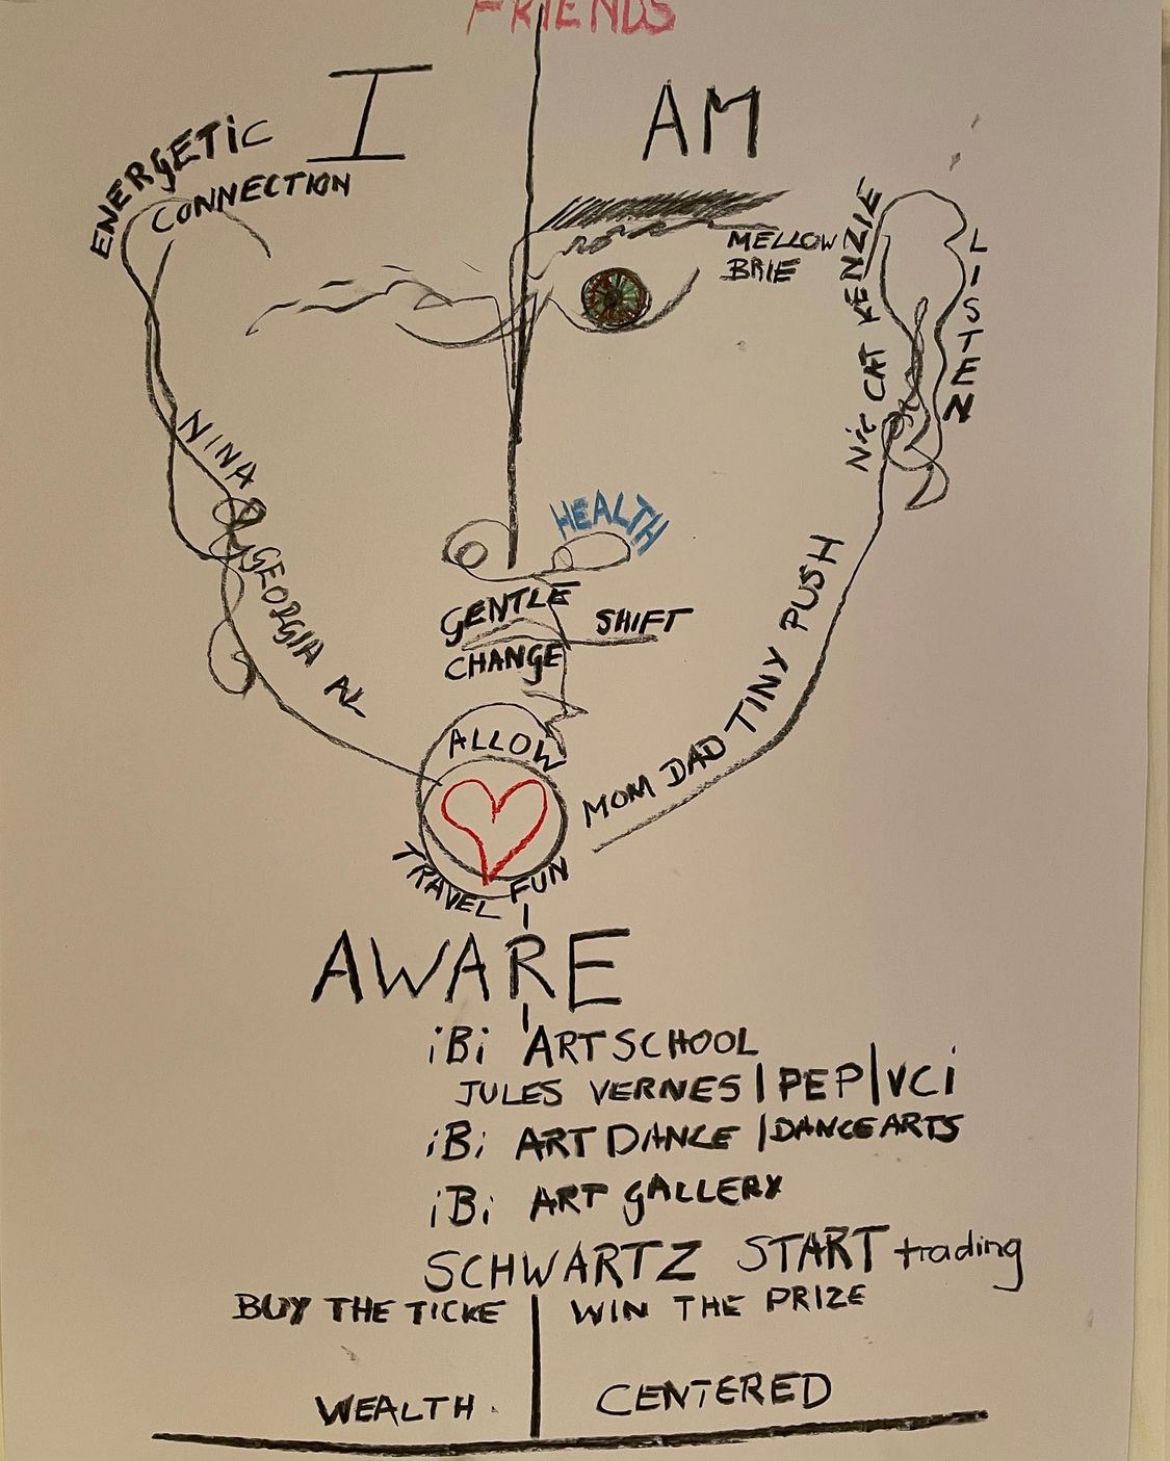 FRIENDS
I AM
ENERGETIC
CONNECTION
MELLOW
BRIE
NIC CAT KENZIE
LISTEN
NINA
GEORGIA AL
HEALTH
GENTLE
SHIFT
CHANGE
MOM DAD TINY PUSH
ALLOW
TRAVEL FUN
AWARE
iBi ART SCHOOL
JULES VERNES | PEP | VCi
iBi ART DANCE | DANCE ARTS
iBi ART GALLERY
SCHWARTZ START trading
BUY THE TICKE | WIN THE PRIZE
WEALTH. | CENTERED